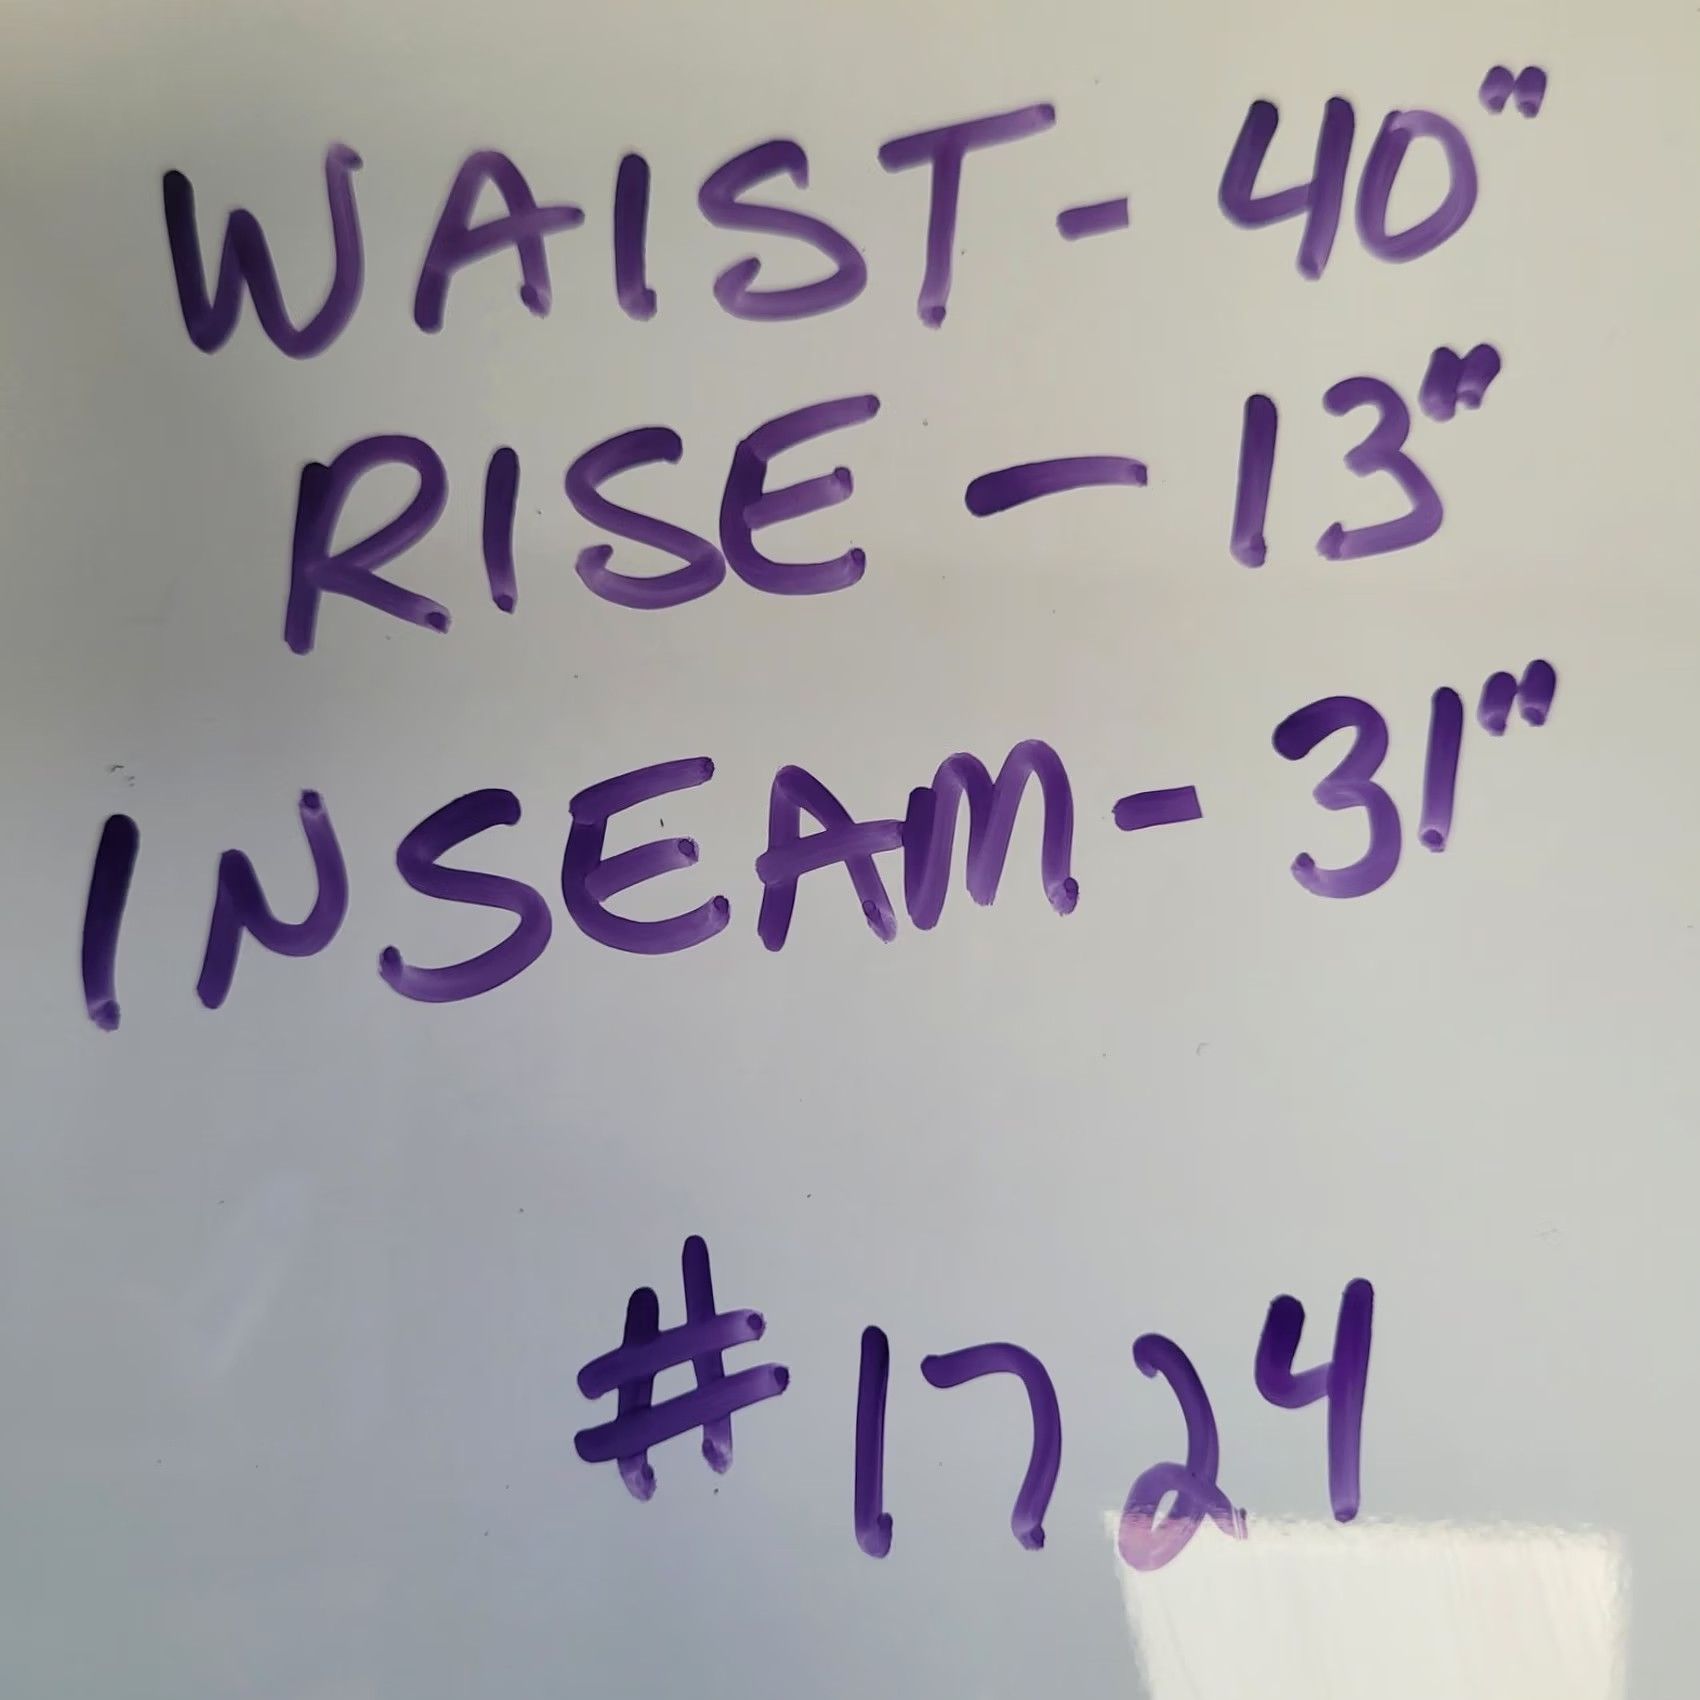 WAIST- 40"
RISE - 13"
INSEAM- 31"
#1724